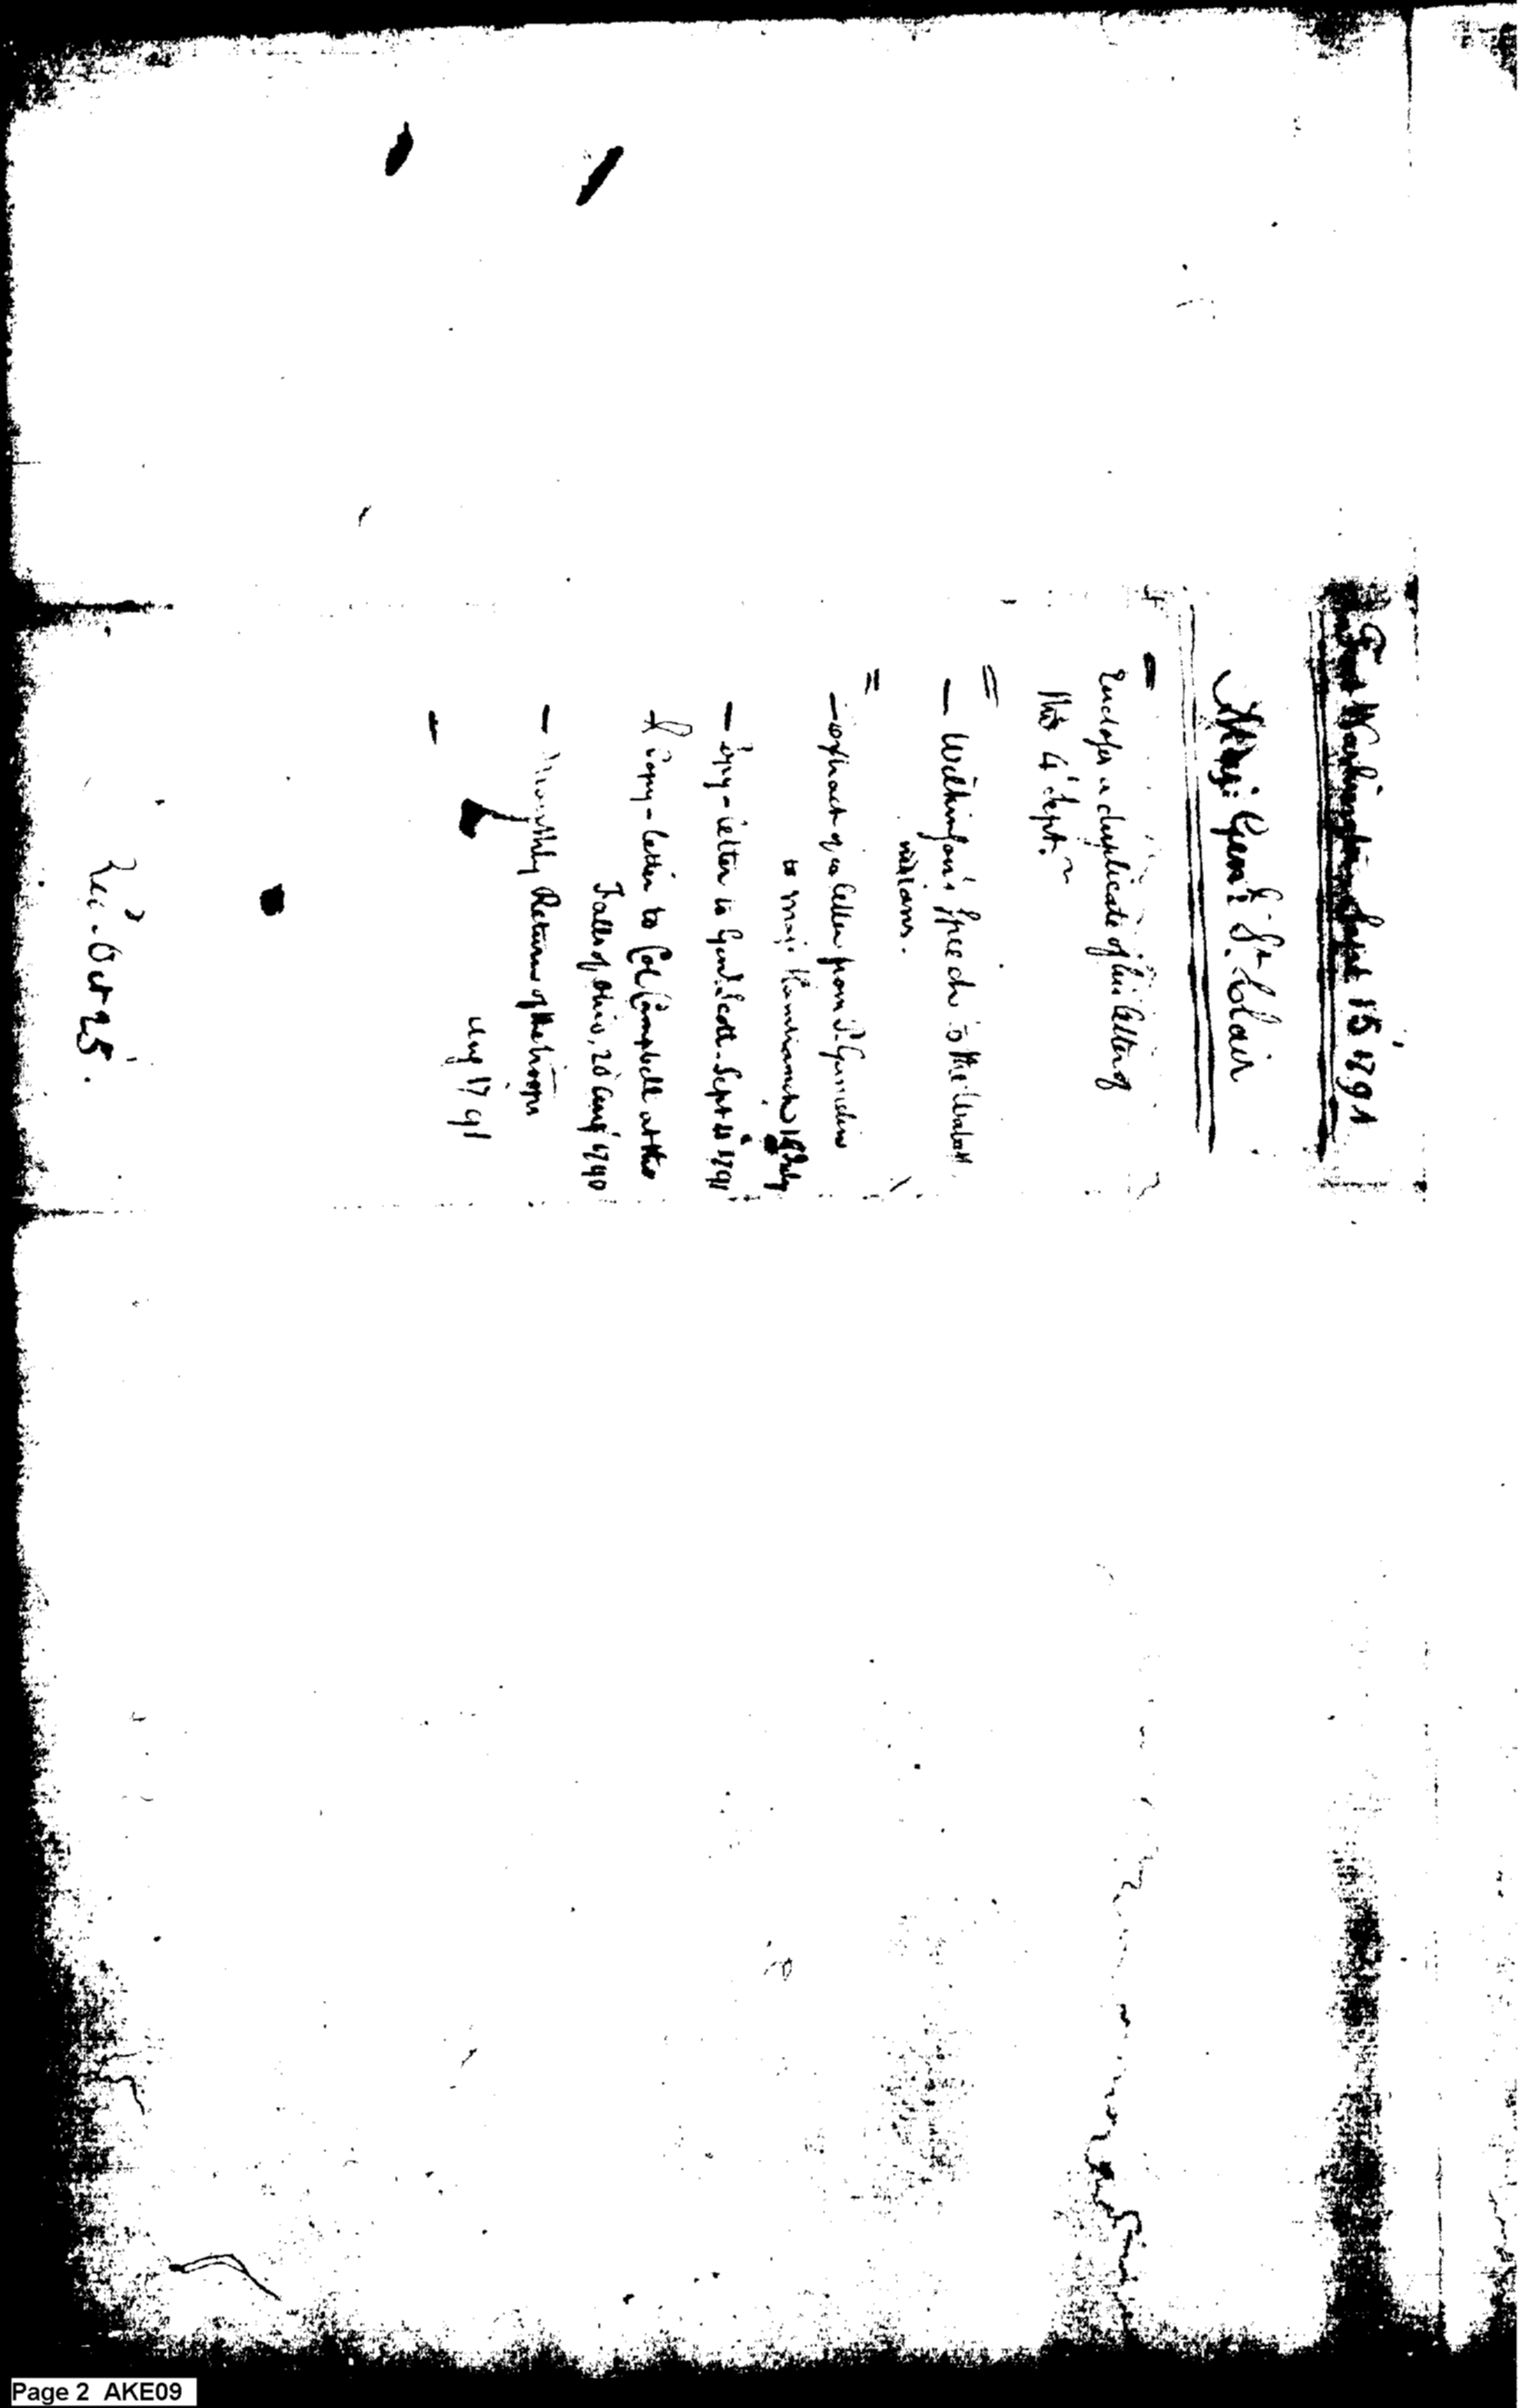 Fort Washington Sept 15 1791
Maj: Genl: St. Clair
Encloses a duplicate of his letter of
the 4 Sept.
- Wilkinson's Speech to the Wabash
indians.
- extract of a letter from P. Gamelin
to Maj. Hamtramck July
- Copy - letter to Genl. Scott. Sept 1791
Copy - letter to Col Campbell at the
Falls of Ohio, 20 Aug 1790
- Monthly Return of the troops
Aug 1791
Rec. Oct 25.
Page 2 AKE09